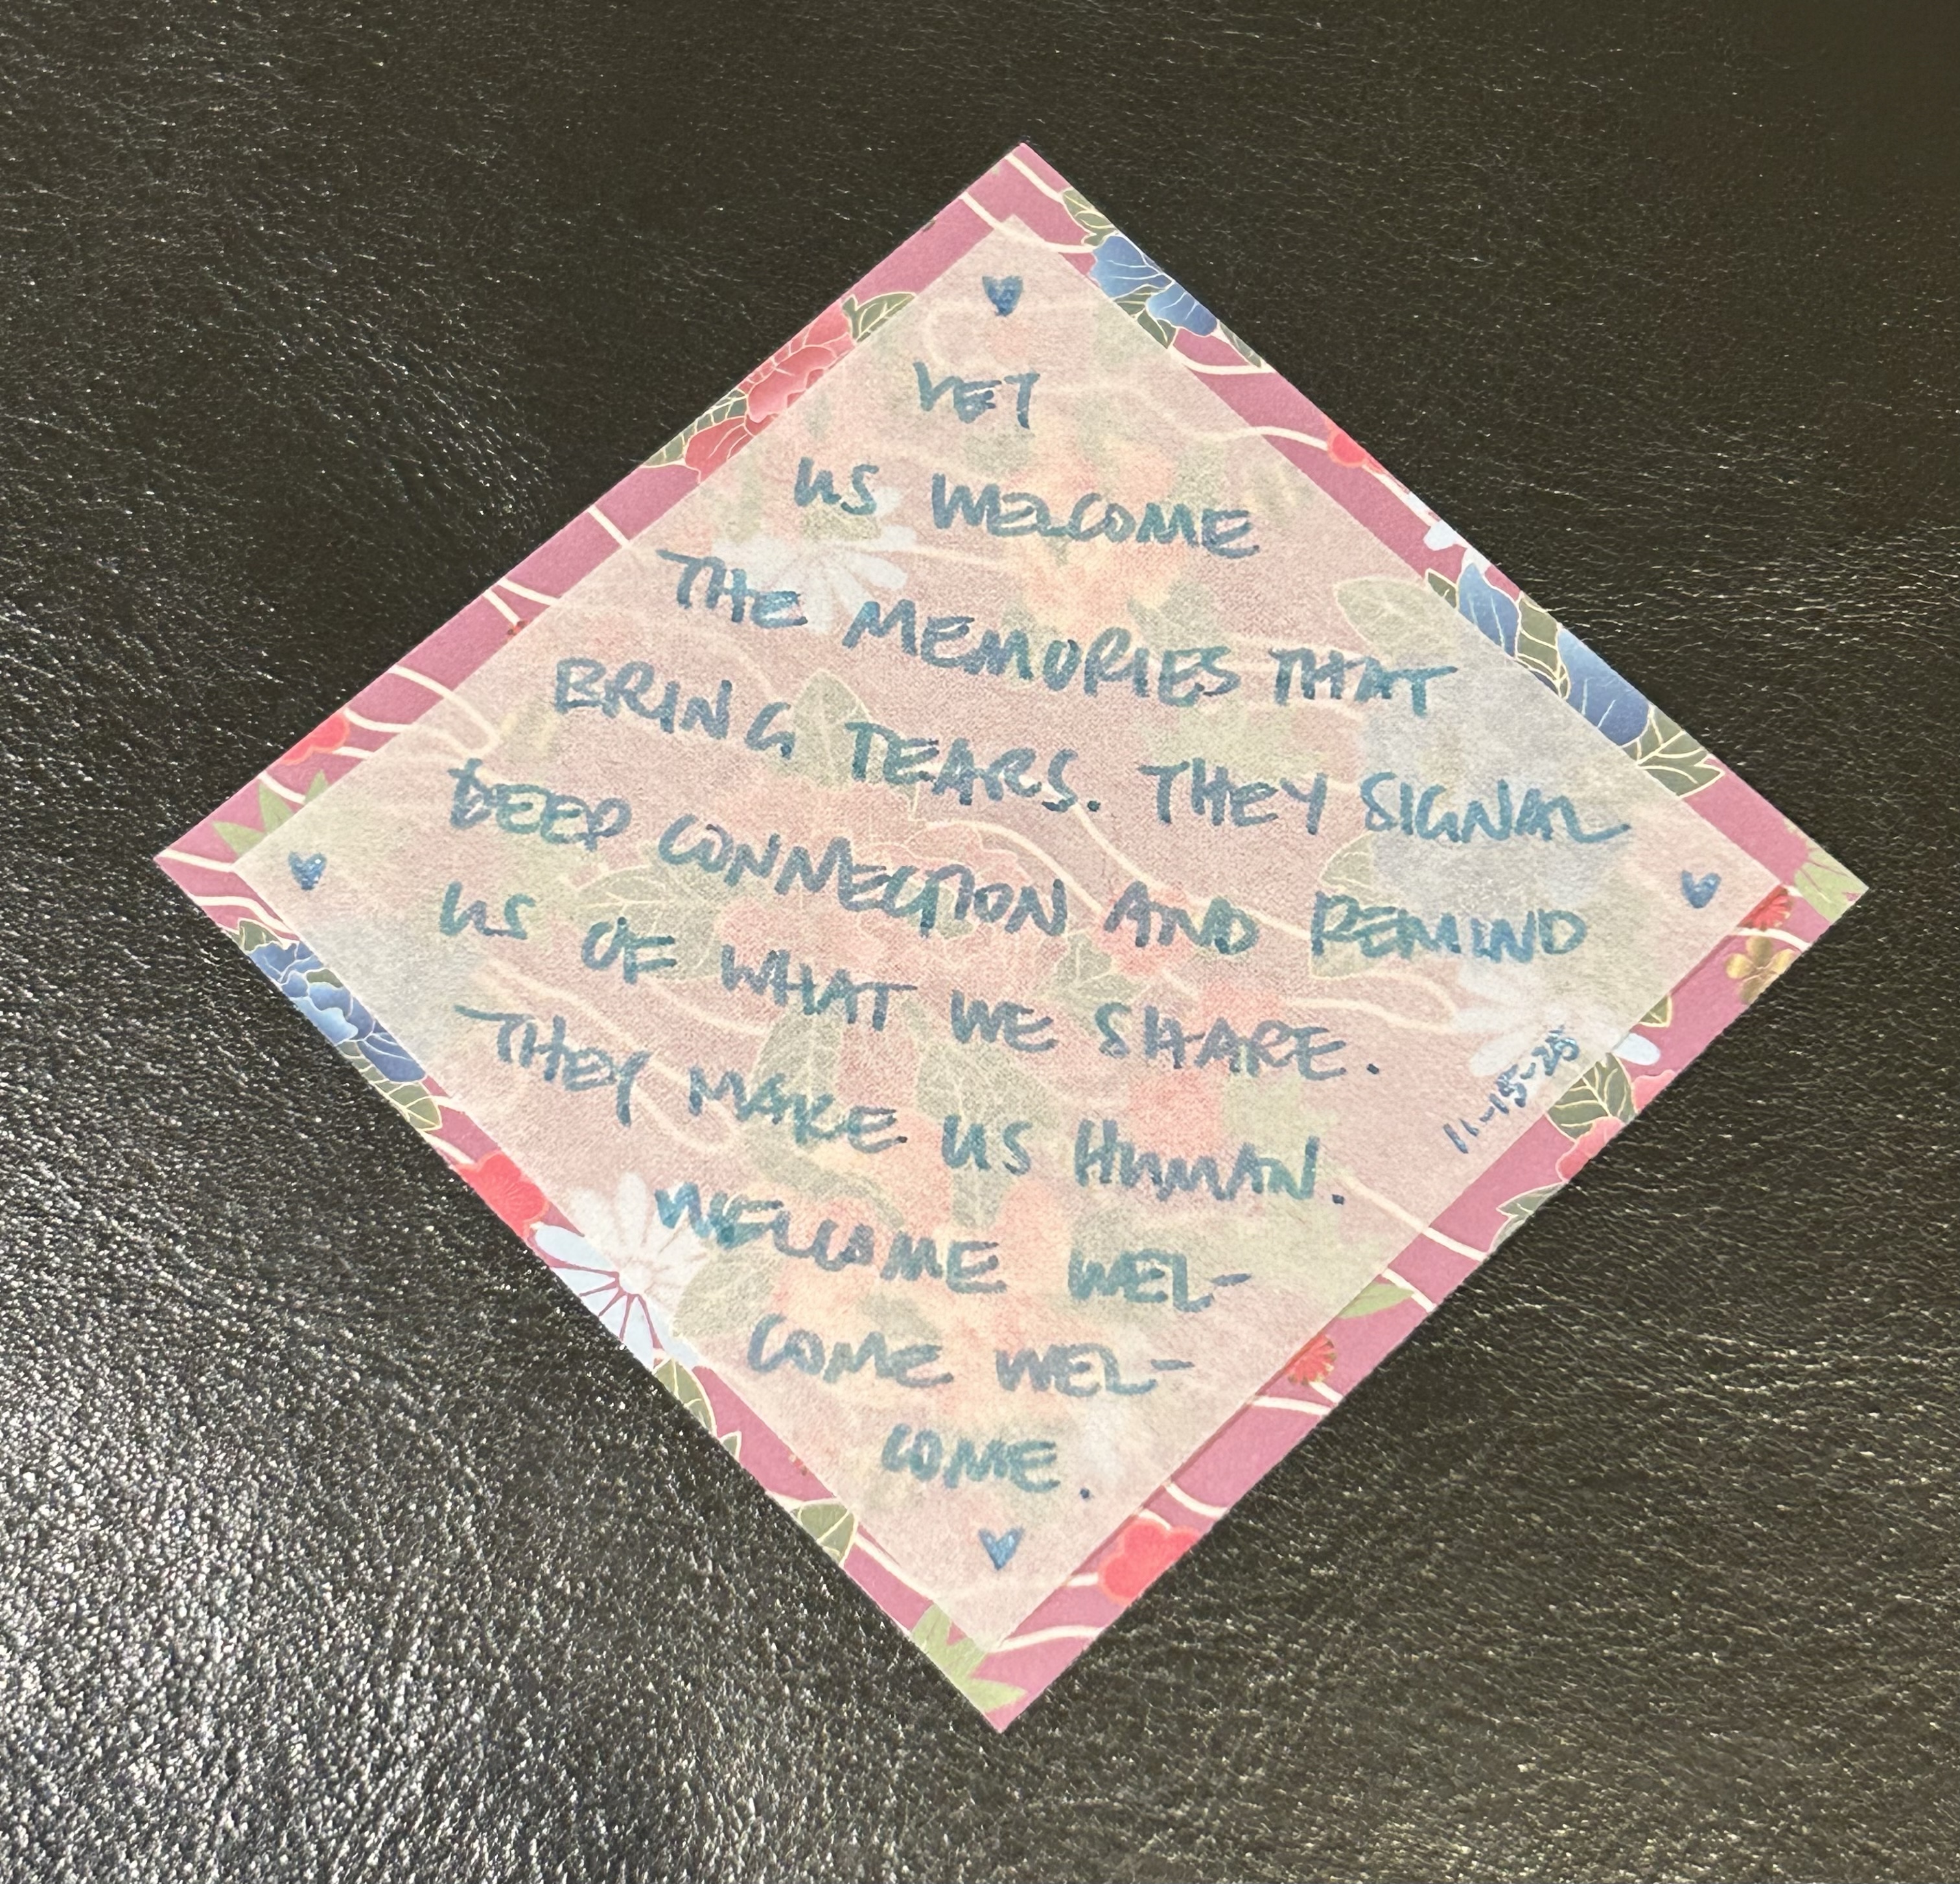 LET
US WELCOME
THE MEMORIES THAT
BRING TEARS. THEY SIGNAL
DEEP CONNECTION AND REMIND
US OF WHAT WE SHARE.
THEY MAKE US HUMAN.
WELCOME WEL-
COME WEL-
COME.
11-15-25